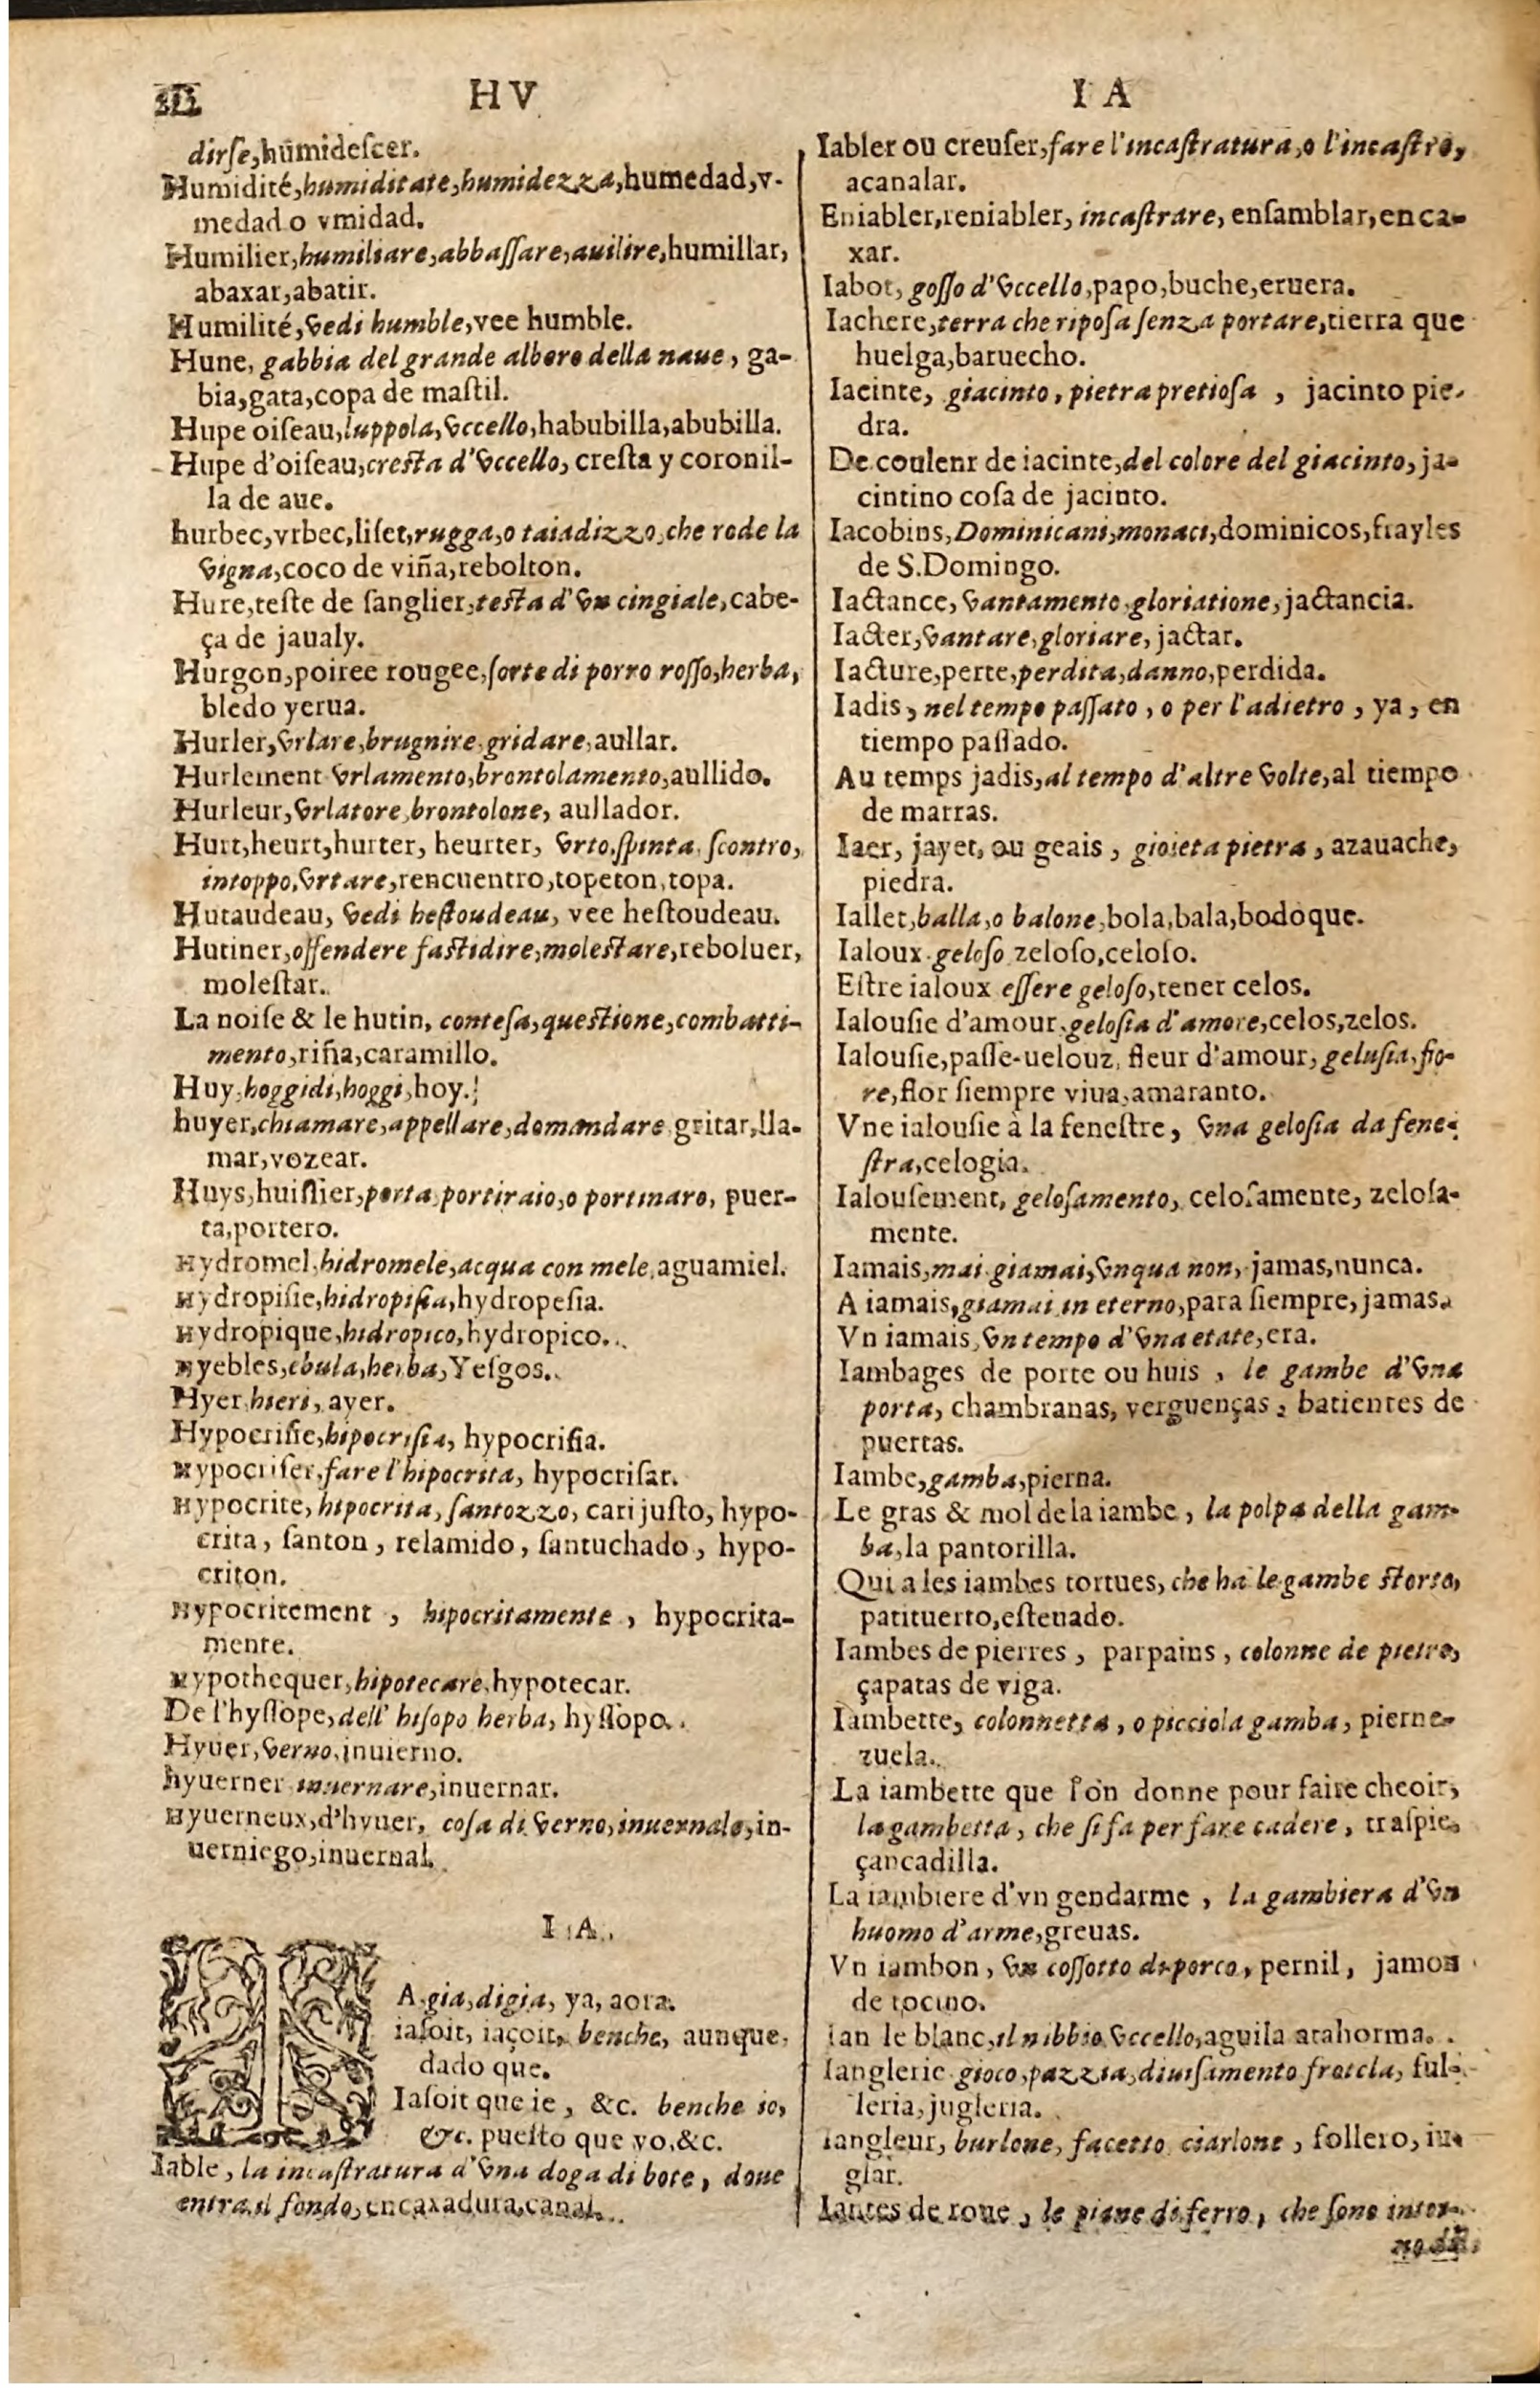 HV
dirſe,humideſcer.
Humidité,humiditate,humidezza,humedad,v-
medad o vmidad.
Humilier,humiliare,abbaſſare,auilire,humillar,
abaxar,abatir.
Humilité,vedi humble,vee humble.
Hune, gabbia del grande albero della naue, ga-
bia,gata,copa de maſtil.
Hupe oiſeau,luppola,vccello,habubilla,abubilla.
Hupe d'oiſeau,creſta d'vccello, creſta y coronil-
la de aue.
hurbec,vrbec,liſet,rugga,o taiadizzo,che rode la
vigna,coco de viña,rebolton.
Hure,teſte de ſanglier,teſta d'vn cingiale,cabe-
ça de jaualy.
Hurgon,poiree rougee,ſorte di porro roſſo,herba,
bledo yerua.
Hurler,vrlare,brugnire,gridare,aullar.
Hurlement vrlamento,brontolamento,aullido.
Hurleur,vrlatore,brontolone, aullador.
Hurt,heurt,hurter, heurter, vrto,ſpinta, ſcontro,
intoppo,vrtare,rencuentro,topeton,topa.
Hutaudeau, vedi heſtoudeau, vee heſtoudeau.
Hutiner,offendere faſtidire,moleſtare,reboluer,
moleſtar.
La noiſe & le hutin, conteſa,queſtione,combatti-
mento,riña,caramillo.
Huy,hoggidi,hoggi,hoy.
huyer,chiamare,appellare,domandare gritar,lla-
mar,vozear.
Huys,huiſſier,porta,portiraio,o portinaro, puer-
ta,portero.
Hydromel,hidromele,acqua con mele,aguamiel.
Hydropiſie,hidropiſia,hydropeſia.
Hydropique,hidropico,hydropico.
Hyebles,ebula,herba,Yeſgos.
Hyer,hieri, ayer.
Hypocriſie,hipocriſia, hypocriſia.
Hypocriſer,fare l'hipocrita, hypocriſar.
Hypocrite, hipocrita, ſantozzo, cari juſto, hypo-
crita, ſanton, relamido, ſantuchado, hypo-
criton.
Hypocritement, hipocritamente, hypocrita-
mente.
Hypothequer,hipotecare,hypotecar.
De l'hyſſope,dell' hiſopo herba, hyſſopo.
Hyuer,verno,inuierno.
hyuerner inuernare,inuernar.
Hyuerneux,d'hyuer, coſa di verno,inuernale,in-
uerniego,inuernal.
I A.
A gia,digia, ya, aora.
iaſoit, iaçoit, benche, aunque,
dado que.
Iaſoit que ie, &c. benche io,
&c. pueſto que yo,&c.
Iable, la incaſtratura d'vna doga di bote, doue
entra il fondo,encaxadura,canal.
I A
Iabler ou creuſer,fare l'incaſtratura,o l'incaſtro,
acanalar.
Eniabler,reniabler, incaſtrare, enſamblar,enca-
xar.
Iabot, goſſo d'vccello,papo,buche,eruera.
Iachere,terra che ripoſa ſenza portare,tierra que
huelga,baruecho.
Iacinte, giacinto, pietra pretioſa, jacinto pie-
dra.
De coulenr de iacinte,del colore del giacinto, ja-
cintino coſa de jacinto.
Iacobins,Dominicani,monaci,dominicos,frayles
de S.Domingo.
Iactance, vantamento,gloriatione,jactancia.
Iacter,vantare,gloriare, jactar.
Iacture,perte,perdita,danno,perdida.
Iadis, nel tempo paſſato, o per l'adietro, ya, en
tiempo paſſado.
Au temps jadis,al tempo d'altre volte,al tiempo
de marras.
Iaer, jayet, ou geais, gioieta pietra, azauache,
piedra.
Iallet,balla,o balone,bola,bala,bodoque.
Ialoux geloſo zeloſo,celoſo.
Eſtre ialoux eſſere geloſo,tener celos.
Ialouſie d'amour,geloſia d'amore,celos,zelos.
Ialouſie,paſſe-uelouz, fleur d'amour,geluſia,fio-
re,flor ſiempre viua,amaranto.
Vne ialouſie à la feneſtre, vna geloſia da fene-
ſtra,celogia.
Ialouſement, geloſamento, celoſamente, zeloſa-
mente.
Iamais,mai giamai,vnqua non, jamas,nunca.
A iamais,giamai in eterno,para ſiempre, jamas.
Vn iamais,vn tempo d'vna etate,era.
Iambages de porte ou huis, le gambe d'vna
porta, chambranas, verguenças, batientes de
puertas.
Iambe,gamba,pierna.
Le gras & mol de la iambe, la polpa della gam-
ba,la pantorilla.
Qui a les iambes tortues, che ha le gambe ſtorte,
patituerto,eſteuado.
Iambes de pierres, parpains, colonne de pietre,
çapatas de viga.
Iambette, colonnetta, o picciola gamba, pierne-
zuela.
La iambette que l'on donne pour faire cheoir,
la gambetta, che ſi fa per fare cadere, traſpie,
çancadilla.
La iambiere d'vn gendarme, la gambiera d'vn
huomo d'arme,greuas.
Vn iambon, vn coſſotto di porco, pernil, jamon
de tocino.
ian le blanc,il nibbio vccello,aguila atahorma.
Ianglerie gioco,pazzia,diuiſamento froicla, ful-
leria,jugleria.
iangleur, burlone, facetto ciarlone, follero, iu-
glar.
Iantes de roue, le piane di ferro, che ſono inter-